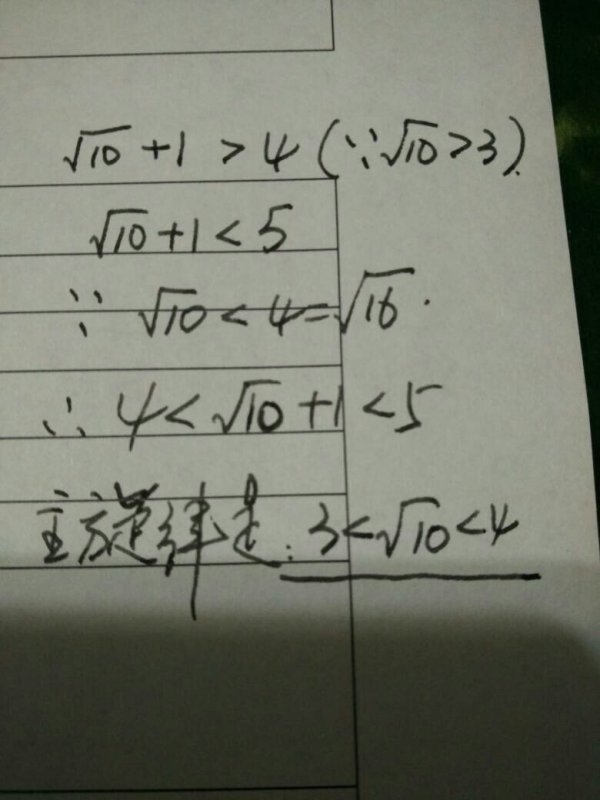 √10 + 1 > 4 (∵√10 > 3).
√10 + 1 < 5
∵ √10 < 4 = √16 .
∴ 4 < √10 + 1 < 5
主旋律是: 3 < √10 < 4